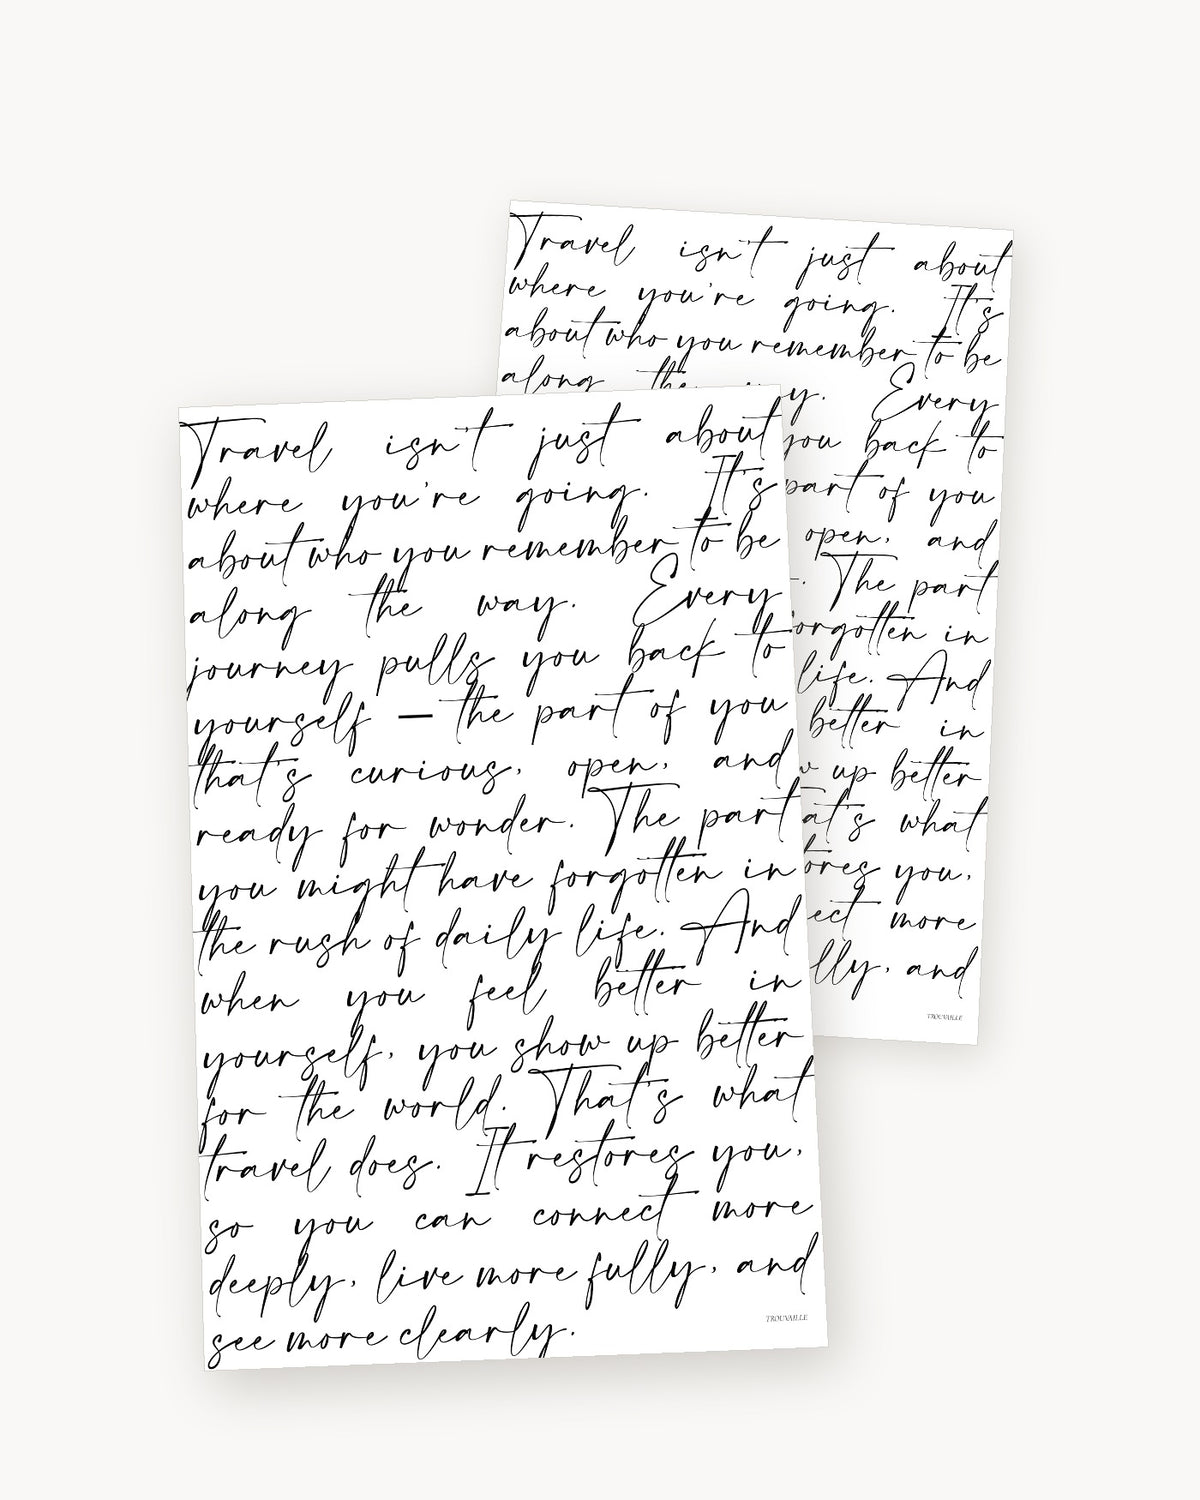 Travel isn't just about
where you're going. It's
about who you remember to be
along the way. Every
you back to
part of you
open, and
The part
forgotten in
life. And
better in
up better
at's what
ores you,
ect more
lly, and
TROUVAILLE
Travel isn't just about
where you're going. It's
about who you remember to be
along the way. Every
journey pulls you back to
yourself — the part of you
that's curious, open, and
ready for wonder. The part
you might have forgotten in
the rush of daily life. And
when you feel better in
yourself, you show up better
for the world. That's what
travel does. It restores you,
so you can connect more
deeply, live more fully, and
see more clearly.
TROUVAILLE